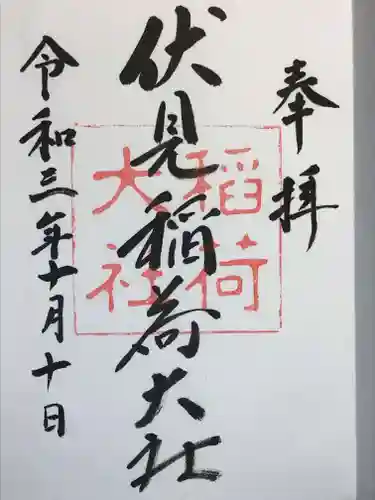 奉拝
伏見稲荷大社
稲荷
大社
令和三年十月十日